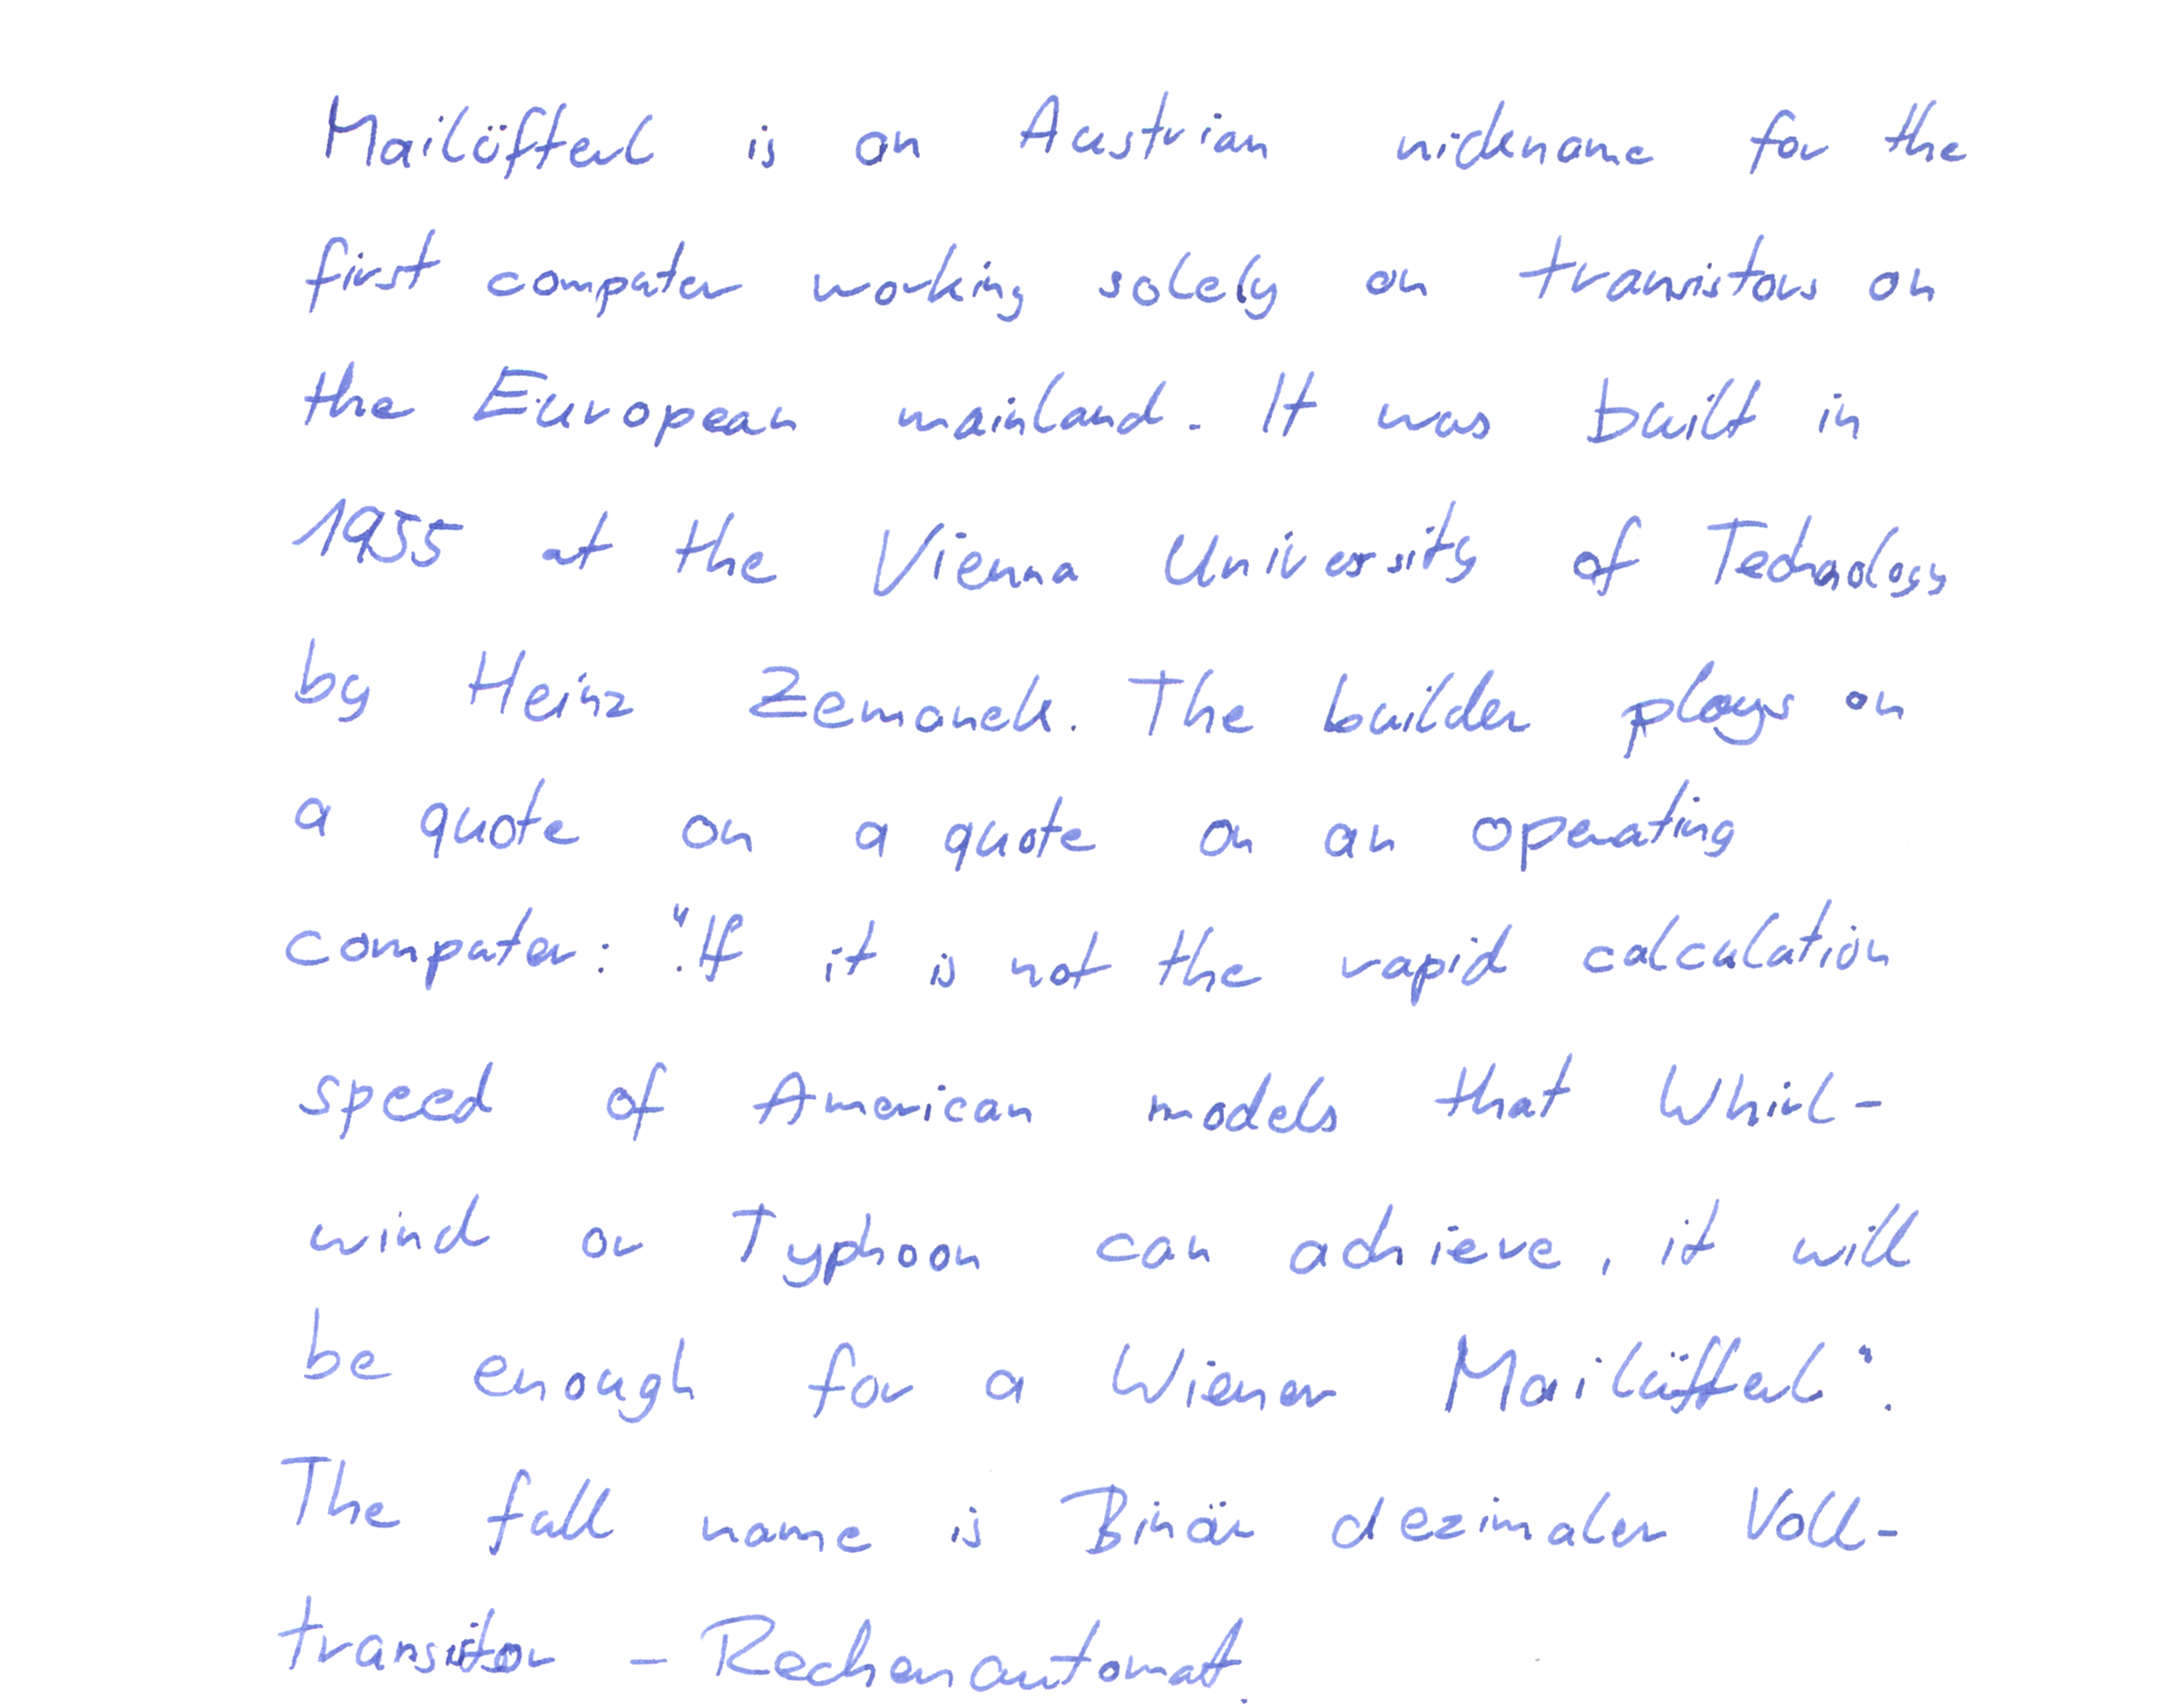 Mailüfterl is an Austrian nickname for the
first computer working solely on transistors on
the European mainland. It was built in
1955 at the Vienna University of Technology
by Heinz Zemanek. The builder plays on
a quote on a quote on an operating
computer: "If it is not the rapid calculation
speed of American models that Whirl-
wind or Typhoon can achieve, it will
be enough for a Wiener Mailüfterl".
The full name is Binär dezimaler Voll-
transistor - Rechenautomat.